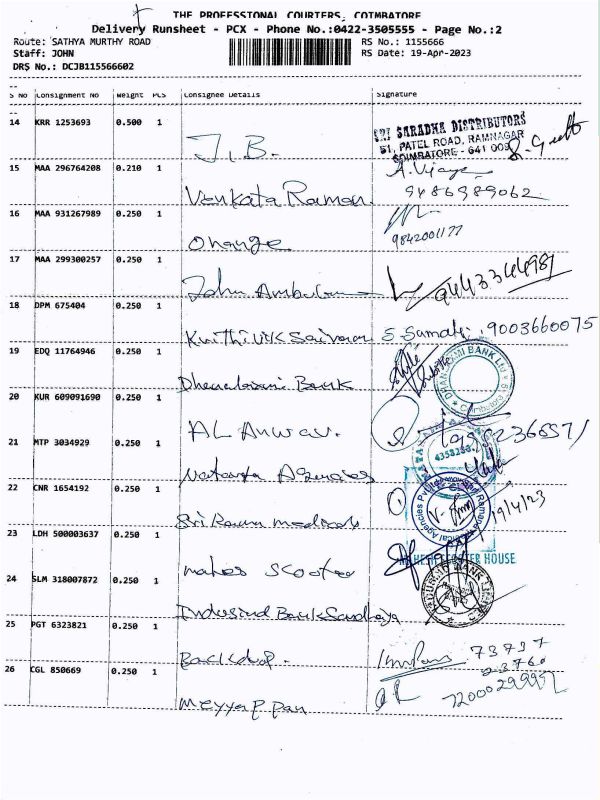 THE PROFESSIONAL COURIERS, COIMBATORE
Delivery Runsheet - PCX - Phone No.:0422-3505555 - Page No.:2
Route: SATHYA MURTHY ROAD RS No.: 1155666
Staff: JOHN RS Date: 19-Apr-2023
DRS No.: DCJB115566602
S No Consignment No Weight PCS Consignee Details Signature
14 KRR 1253693 0.500 1
J.B.
SRI SARADHA DISTRIBUTORS
51, PATEL ROAD, RAMNAGAR
COIMBATORE - 641 009
15 MAA 296764208 0.210 1
Venkata Raman A. Vijaya
9486989062
16 MAA 931267989 0.250 1
Orange 9842001177
17 MAA 299300257 0.250 1
John 9443344981
18 DPM 675404 0.250 1
9003660075
19 EDQ 11764946 0.250 1
Dhanalaxmi Bank
DHANLAXMI BANK LTD
Coimbatore
20 KUR 609091690 0.250 1
AL Anwar.
21 MTP 3034929 0.250 1
Nataraja Agencies
22 CNR 1654192 0.250 1
Sri Ram medicals 19/4/23
23 LDH 500003637 0.250 1
mahes Scooter
SCOOTER HOUSE
24 SLM 318007872 0.250 1
Indusind Bank
25 PGT 6323821 0.250 1
Backdrop - 73737
23760
26 CGL 850669 0.250 1
Meyyappan